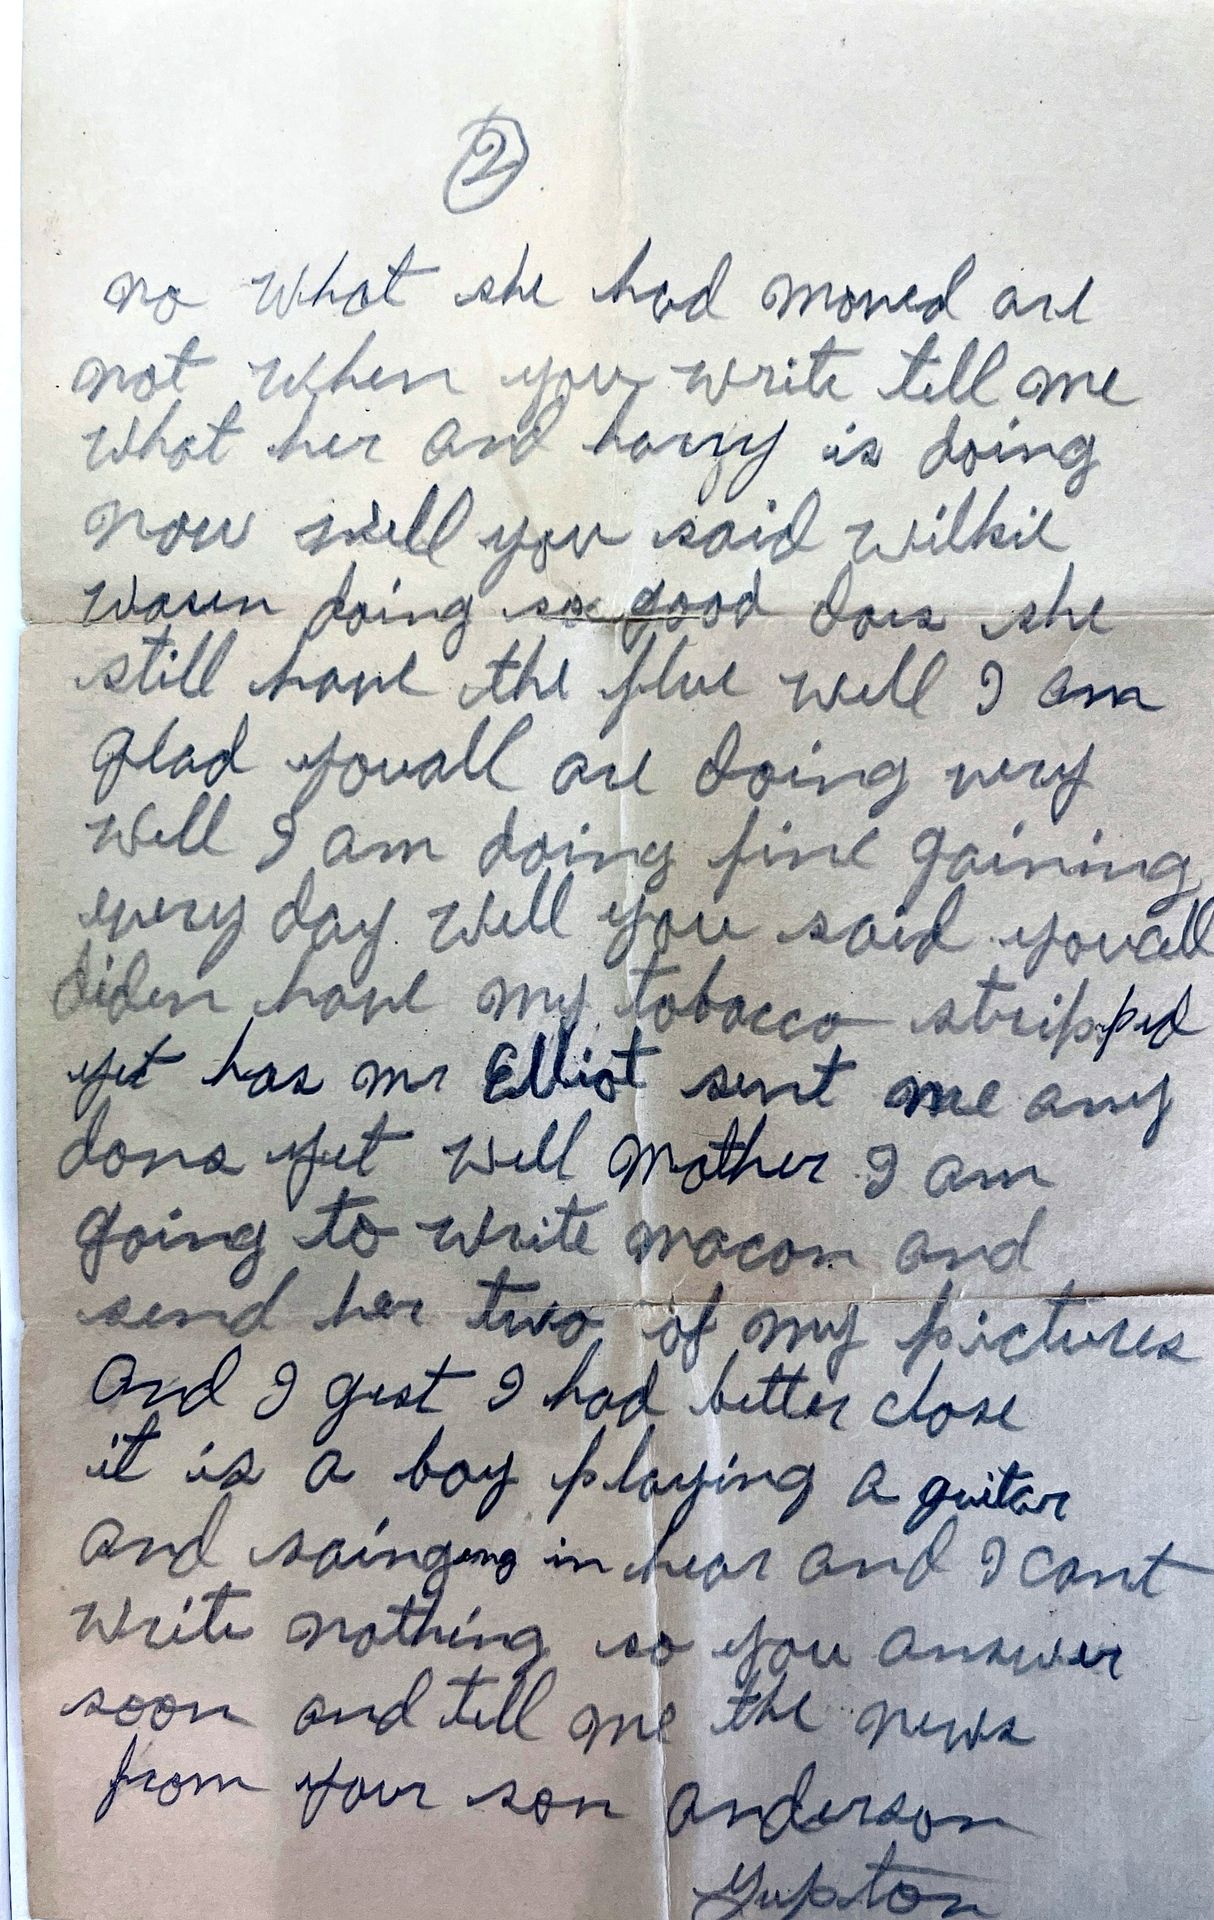 2
no what she had moved are
not when you write tell me
what her and harry is doing
now well you said wilkie
wasen doing so good does she
still have the flue well I am
glad youall are doing very
well I am doing fine gaining
every day well you said youall
diden have my tobacco stripped
yet has mr Elliot sent me any
dons yet well mother I am
going to write macon and
send her two of my pictures
and I gest I had better close
it is a boy playing a guitar
and sainging in hear and I cant
write nothing so you answer
soon and tell me the news
from your son anderson
Yupton